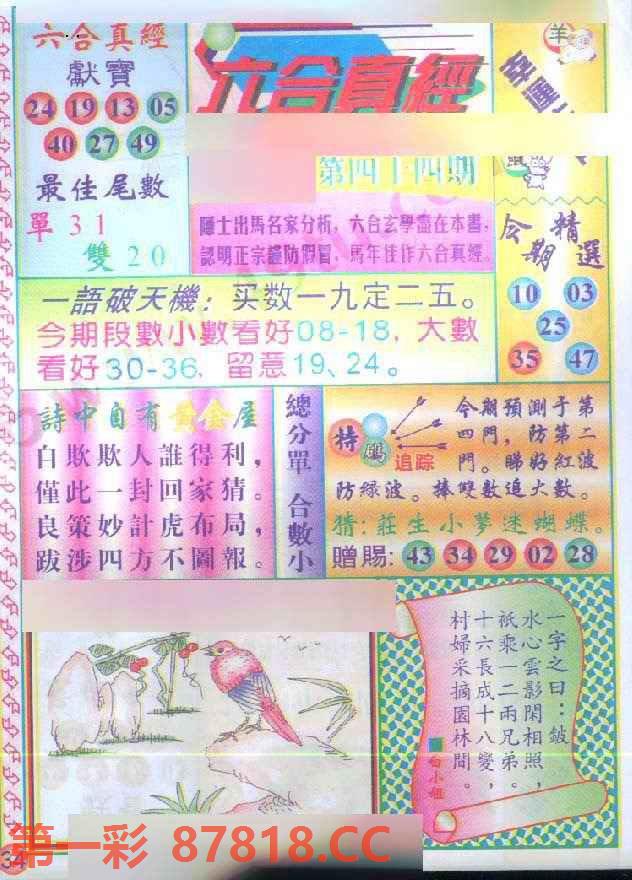 六合真經
獻寶
24 19 13 05
40 27 49
最佳尾數
單 3 1
雙 2 0
六合真經
第四十四期
隱士出馬名家分析，六合玄學盡在本書，
認明正宗謹防假冒，馬年佳作六合真經。
羊
今期精選
10 03
25
35 47
一語破天機：买数一九定二五。
今期段數小數看好08-18，大數
看好30-36，留意19、24。
詩中自有黃金屋
自欺欺人誰得利，
僅此一封回家猜。
良策妙計虎布局，
跋涉四方不圖報。
總分單 合數小
特碼
追踪
今期預測于第
四門，防第二
門。睇好紅波
防綠波。捧雙數追大數。
猜：莊生小夢迷蝴蝶。
贈賜：43 34 29 02 28
一字之曰：皴
水心雲影閑相照，
祇乘一二兩兄弟。
十六長成十八變，
村婦采摘園林間。
白小姐
34
第一彩 87818.CC